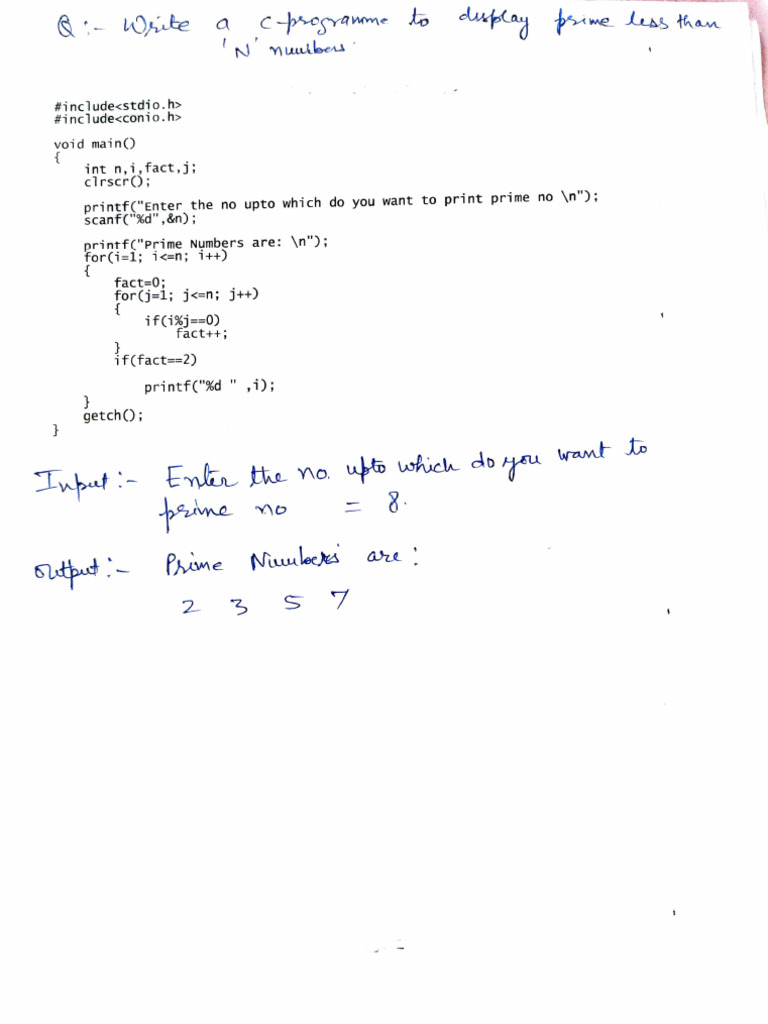 Q :- Write a c-programme to display prime less than
'N' numbers.
#include<stdio.h>
#include<conio.h>
void main()
{
int n,i,fact,j;
clrscr();
printf("Enter the no upto which do you want to print prime no \n");
scanf("%d",&n);
printf("Prime Numbers are: \n");
for(i=1; i<=n; i++)
{
fact=0;
for(j=1; j<=n; j++)
{
if(i%j==0)
fact++;
}
if(fact==2)
printf("%d " ,i);
}
getch();
}
Input :- Enter the no. upto which do you want to
prime no = 8.
Output :- Prime Numbers are :
2 3 5 7